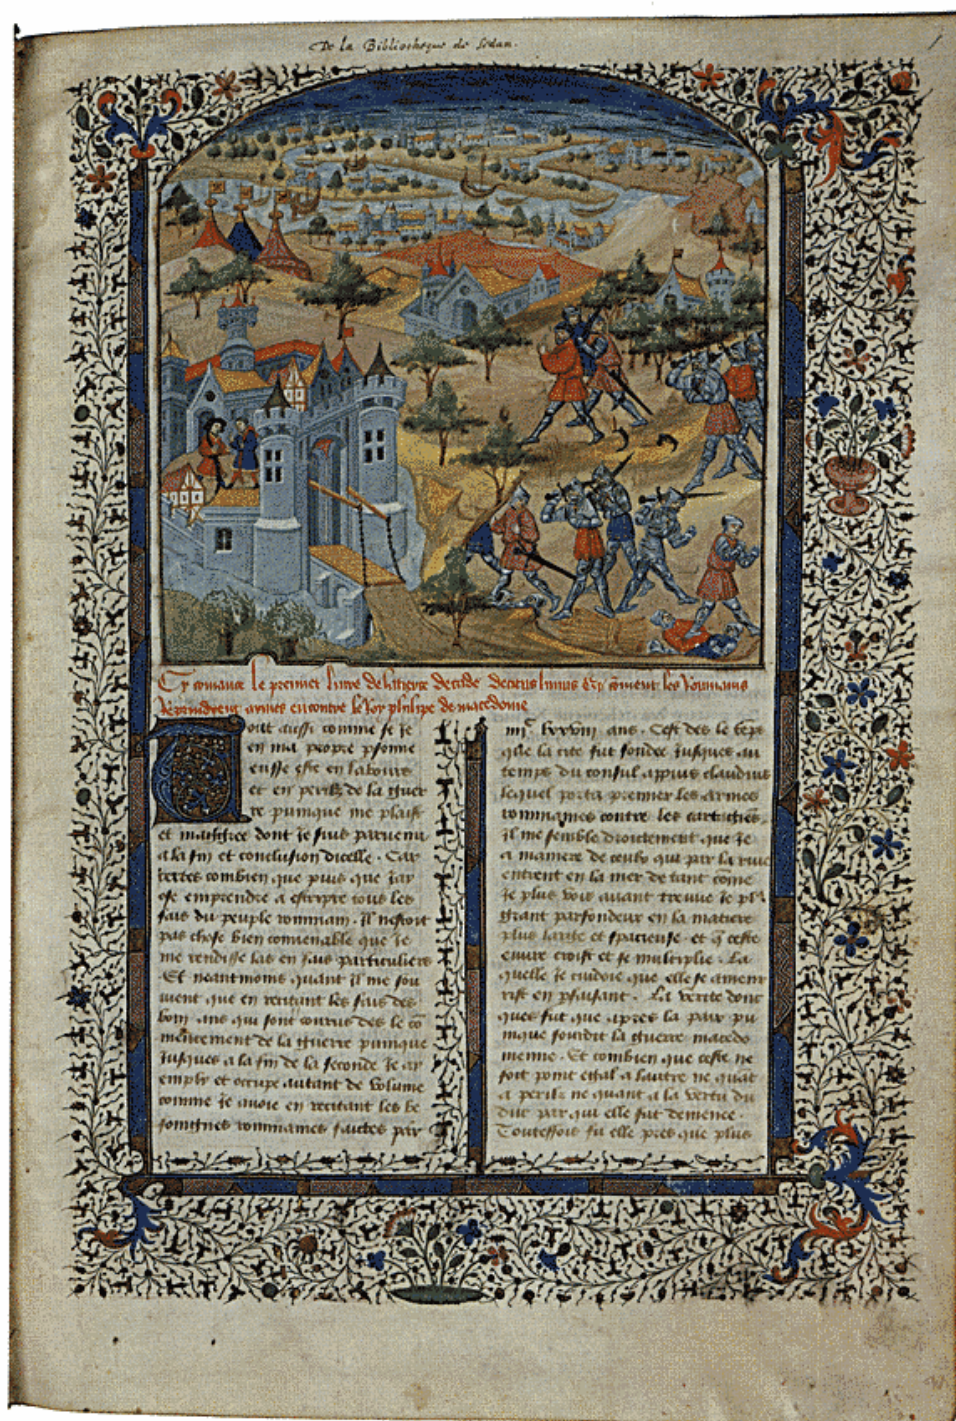 De la Bibliotheque de Sedan.
Cy comance le premier livre de la tierce decade de titus livius Et coment les Rommains
Reprindrent armes encontre le Roy philipe de macedoine
Tout aussi comme se Je
en ma propre psonne
eusse este en labours
et en perilz de la guer
re punique me plaist
et dont Je suis parvenu
a la fin et conclusion dicelle. Car
certes combien que puis que Jay
ose emprendre a escripre tous les
fais du peuple rommain. Il nestoit
pas chose bien convenable que Je
me rendisse las en fais particuliers
Et neantmoins quant Il me sou
vient que en recitant les fais des
lxiij ans qui sont courus des le co
mencement de la guerre punique
Jusques a la fin de la seconde Je ay
emply et occupe autant de volume
comme Je avoie en recitant les be
soingnes rommaines faictes par
ans. Cest des le teps
que la cite fut fondee Jusques au
temps du consul appius claudius
lequel porta premier les armes
rommaines contre les cartagies.
Il me semble droictement que Je
a maniere de ceulx qui par la rive
entrent en la mer de tant come
Je plus vois avant treuve Je pl9
grant parfondeur en la matiere
plus large et spacieuse. et q ceste
euvre croist et se multeplie. La
quelle Je cuidoie que elle se amenr
rist en psaisant. La verite donc
ques fut que apres la paix pu
nique sourdit la guerre macedo
nienne. Et combien que ceste ne
soit point egal a lautre ne quat
a perilz ne quant a la vertu du
duc par qui elle fut demenee.
Touteffois fu elle pres que plus